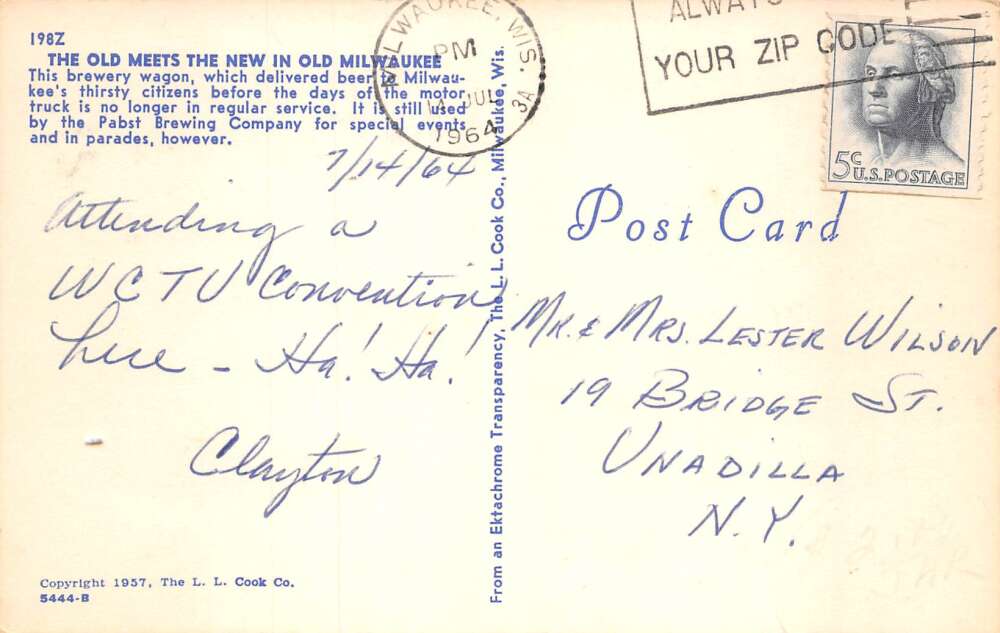 198Z
THE OLD MEETS THE NEW IN OLD MILWAUKEE
This brewery wagon, which delivered beer to Milwau-
kee's thirsty citizens before the days of the motor
truck is no longer in regular service. It is still used
by the Pabst Brewing Company for special events
and in parades, however.
7/14/64
Attending a
WCTU Convention
here - Ha! Ha!
Clayton
Copyright 1957, The L. L. Cook Co.
5444-B
From an Ektachrome Transparency, The L. L. Cook Co., Milwaukee, Wis.
MILWAUKEE, WIS.
PM
14 JUL
1964
3A
ALWAYS
YOUR ZIP CODE
5c
U.S. POSTAGE
Post Card
MR. & MRS. LESTER WILSON
19 BRIDGE ST.
UNADILLA
N.Y.